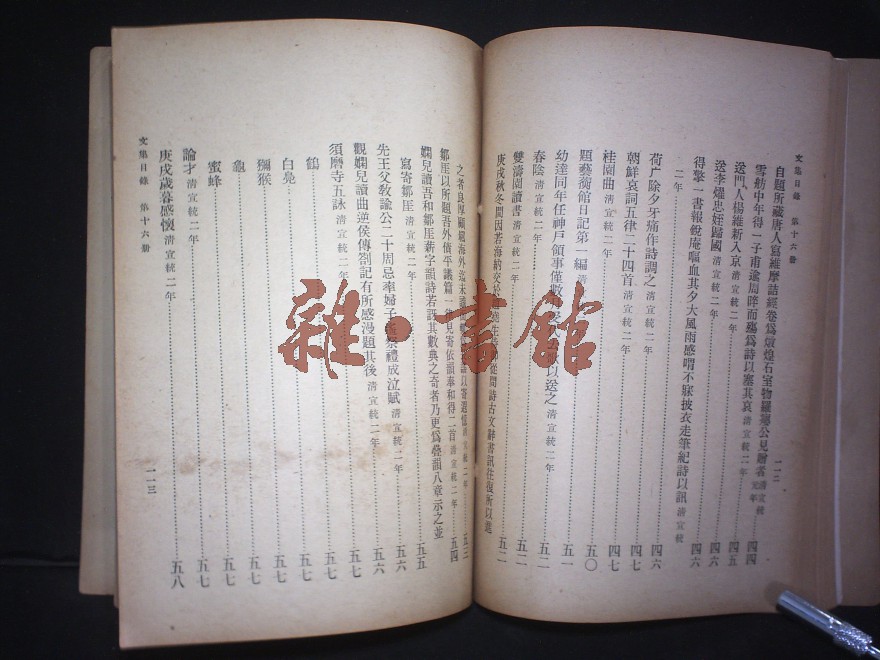 文集目錄　第十六册
一一二
自題所藏唐人寫維摩詰經卷爲燉煌石室物羅癭公見贈者 清宣統元年 四四
雪舫中年得一子甫逾周晬而殤爲詩以塞其哀 清宣統二年 四四
送門人楊維新入京 清宣統二年 四五
送李燿忠姪歸國 清宣統二年 四六
得擎一書報蛻庵嘔血其夕大風雨感喟不寐披衣走筆紀詩以訊 清宣統
二年 四六
荷广除夕牙痛作詩調之 清宣統二年 四六
朝鮮哀詞五律二十四首 清宣統二年 四七
桂園曲 清宣統二年 四七
題藝蘅館日記第一編 五〇
幼達同年任神戶領事僅數月 以送之 清宣統二年 五一
春陰 清宣統二年 五二
雙濤園讀書 清宣統二年 五二
庚戌秋冬間因若海納交於 從問詩古文辭書訊往復所以進
之者良厚顧羈海外迄未 以寄遐憶 五三
鄒厓以所題吾外債平議篇一律見寄依韻奉和得二首 清宣統二年 五四
嫻兒讀吾和鄒厓薪字韻詩若訝其數典之奇者乃更爲疊韻八章示之並
寫寄鄒厓 清宣統二年 五五
先王父教諭公二十周忌率婦子 祭禮成泣賦 清宣統二年 五六
觀嫻兒讀曲逆侯傳劄記有所感漫題其後 清宣統二年 五六
須磨寺五詠 清宣統二年 五七
鶴 五七
白鳧 五七
獼猴 五七
龜 五七
蜜蜂 五七
論才 清宣統二年 五七
庚戌歲暮感懷 清宣統二年 五八
文集目錄　第十六册
一一三
雜·書館